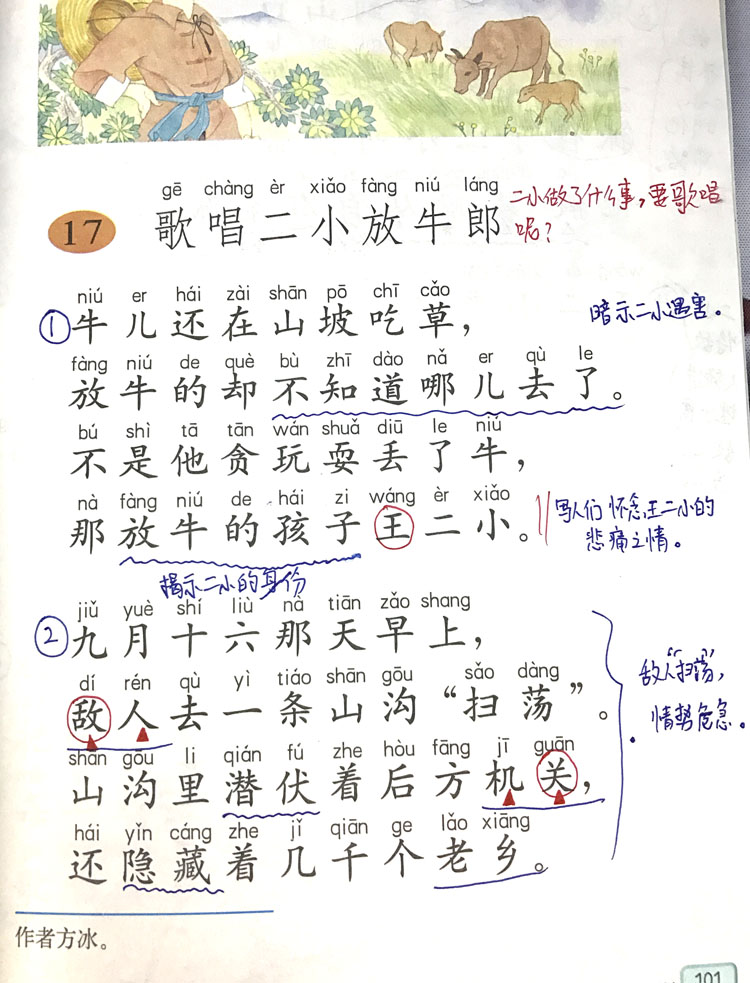 gē chàng èr xiǎo fàng niú láng
17 歌唱二小放牛郎
二小做了什么事，要歌唱
呢？
niú er hái zài shān pō chī cǎo
①牛儿还在山坡吃草，
暗示二小遇害。
fàng niú de què bù zhī dào nǎ er qù le
放牛的却不知道哪儿去了。
bú shì tā tān wán shuǎ diū le niú
不是他贪玩耍丢了牛，
nà fàng niú de hái zi wáng èr xiǎo
那放牛的孩子王二小。
写人们怀念王二小的
悲痛之情。
揭示二小的身份
jiǔ yuè shí liù nà tiān zǎo shang
②九月十六那天早上，
dí rén qù yì tiáo shān gōu sǎo dàng
敌人去一条山沟“扫荡”。
敌人“扫荡”，
情势危急。
shān gōu li qián fú zhe hòu fāng jī guān
山沟里潜伏着后方机关，
hái yǐn cáng zhe jǐ qiān ge lǎo xiāng
还隐藏着几千个老乡。
作者方冰。
101